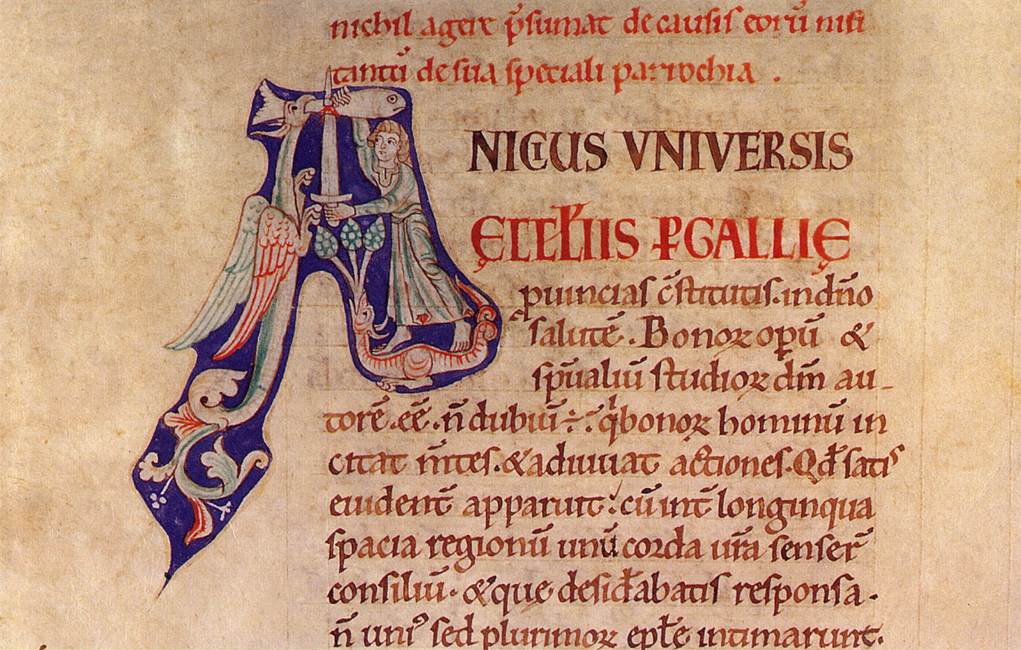 nichil agere p̄sumat de causis eorū nisi
tantū de sua speciali parrochia .
ANICIUS VNIVERSIS
ĘCCLĪIS P GALLIĘ
ꝓuincias c̄stitutis. in dn̄o
salutē. Bonoꝝ oꝑū &
sp̄ualiū studioꝝ dm̄ au-
torē. eē. n̄ dubiū ÷. q̇ bonoꝝ hominū in
citat m̄tes. & adiuuat actiones. Qđ satis
euident̄ apparuit: cū int̄ longinqua
spacia regionū unū corda ūra senser̄
consiliū. & que desiđabatis responsa.
n̄ uniꝰ sed plurimoꝝ ep̄łe intimarunt.